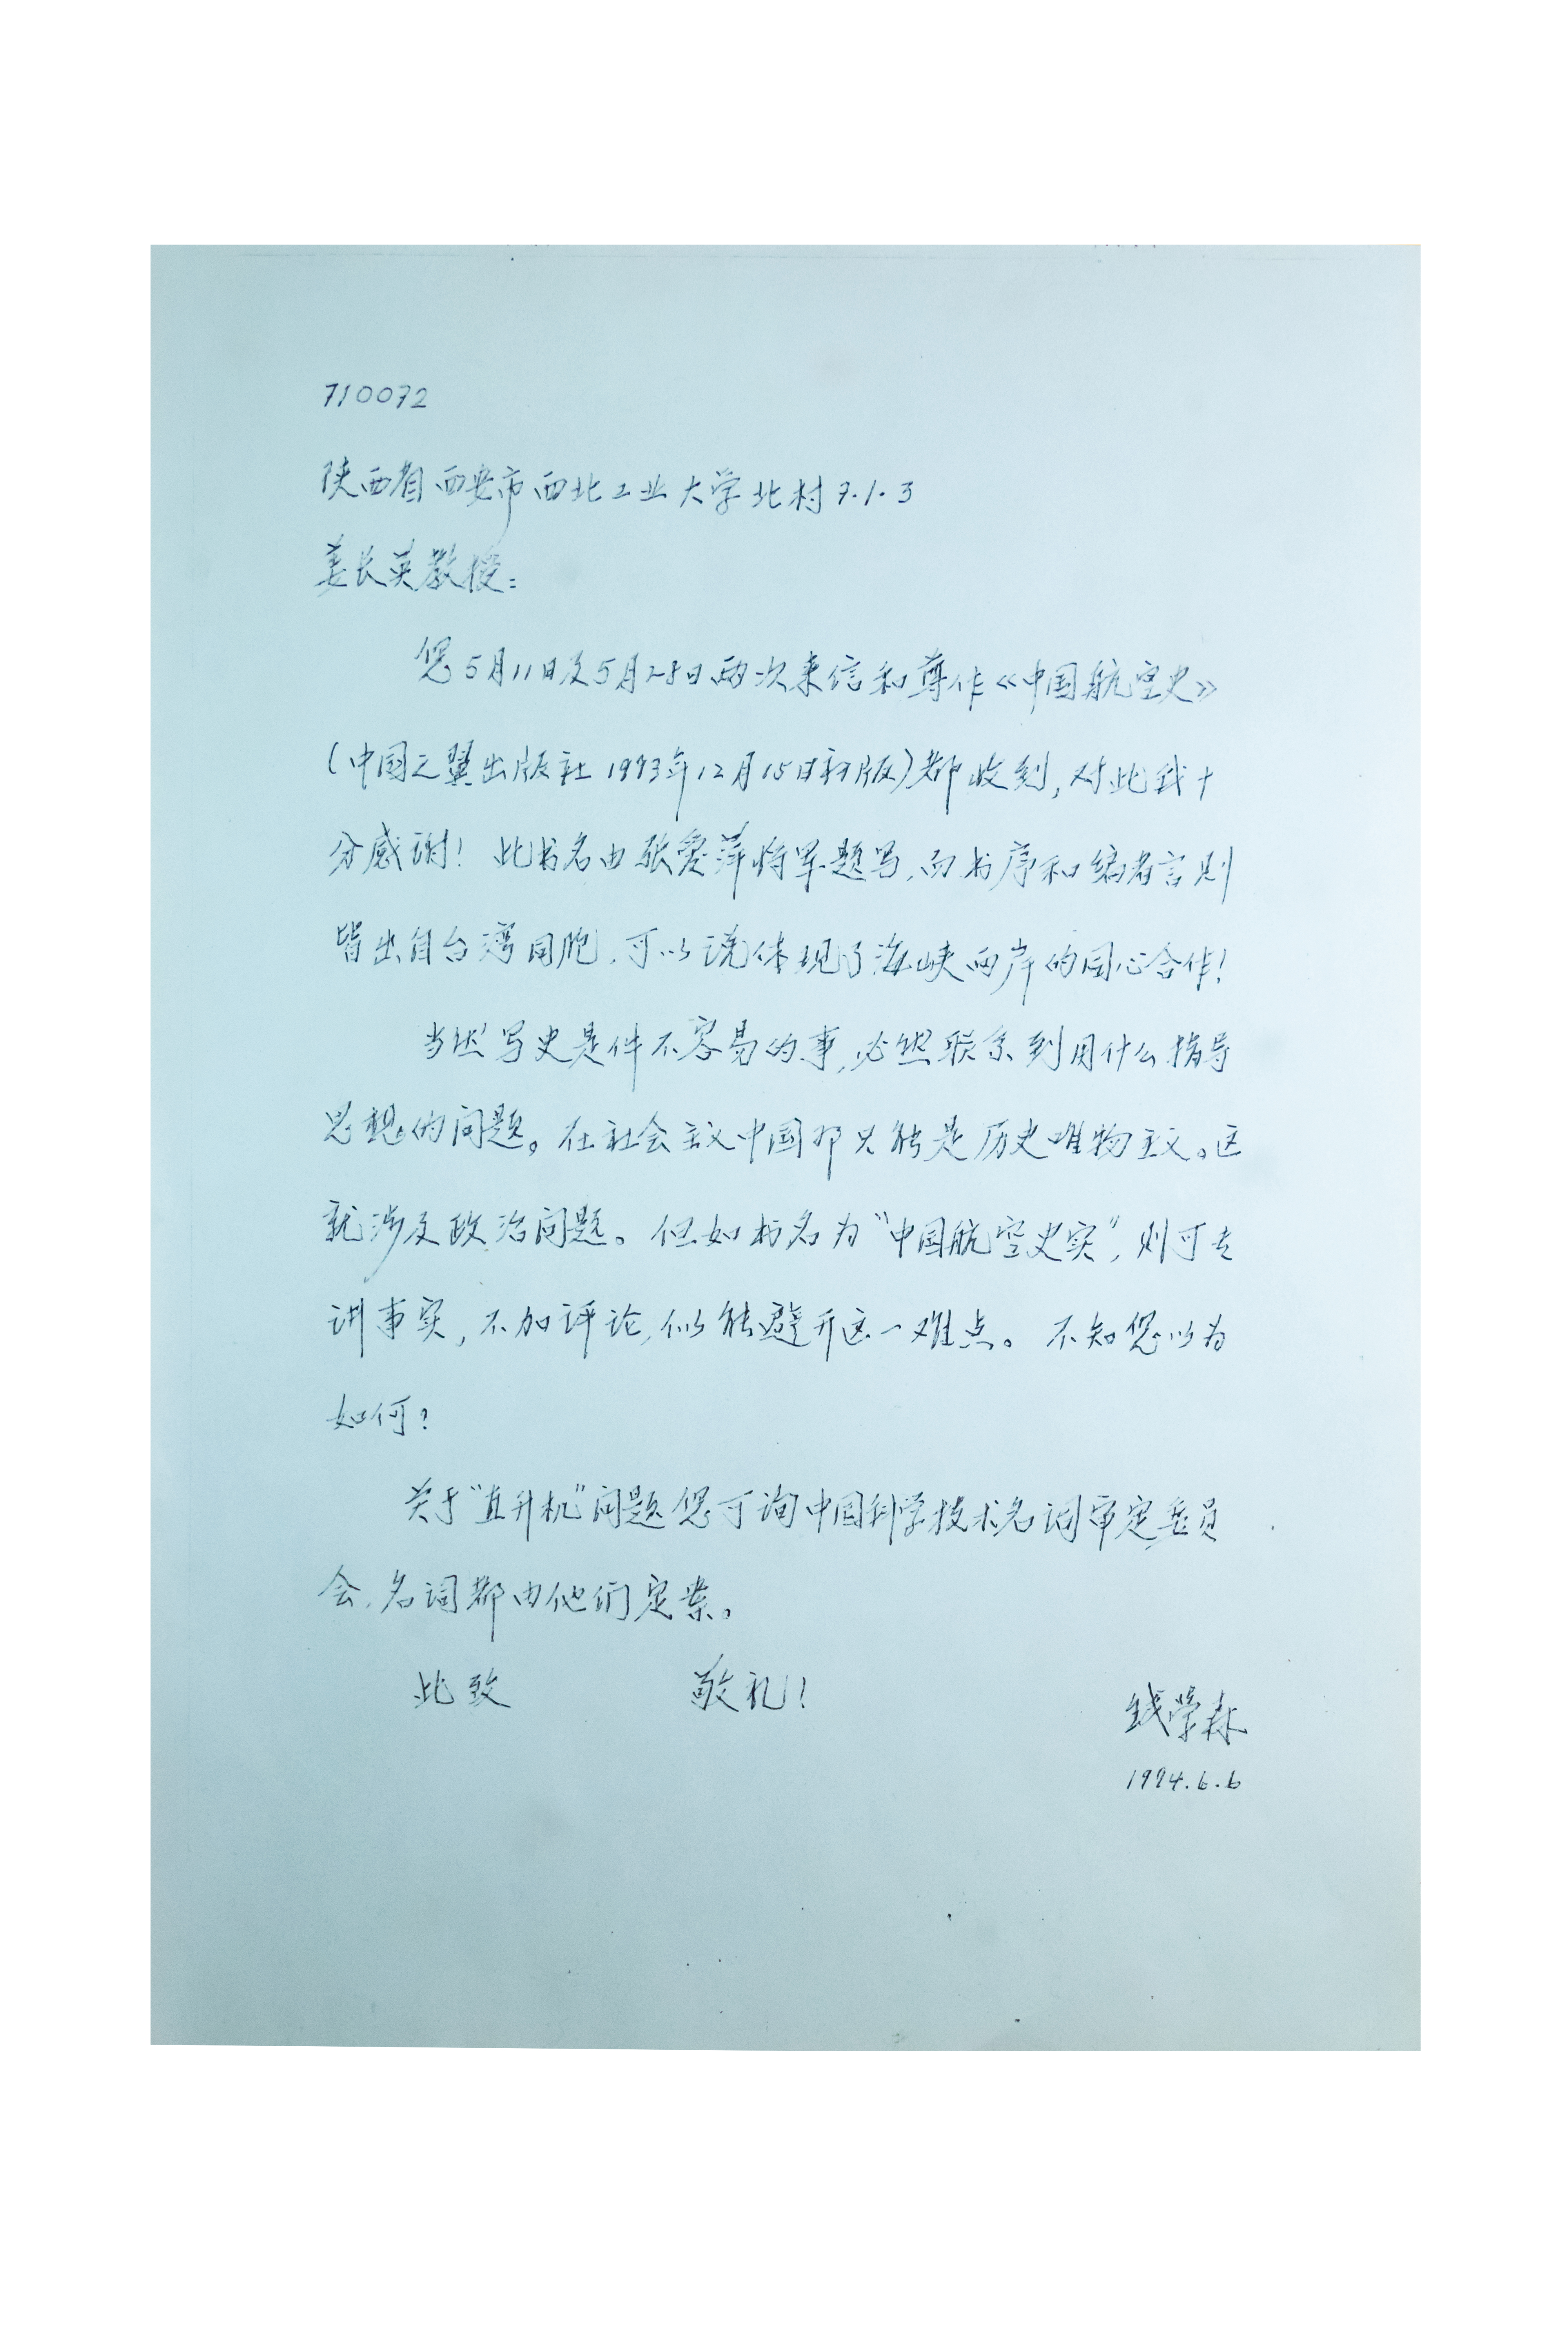 710072
陕西省西安市西北工业大学北村7.1.3
姜长英教授：
您5月11日及5月28日两次来信和尊作《中国航空史》
(中国之翼出版社1993年12月15日初版)都收到，对此我十
分感谢！此书名由张爱萍将军题写，而书序和编者言则
皆出自台湾同胞，可以说体现了海峡两岸的同心合作！
当然写史是件不容易的事，必然联系到用什么指导
思想的问题。在社会主义中国那只能是历史唯物主义。这
就涉及政治问题。但如书名为“中国航空史实”，则可专
讲事实，不加评论，似能避开这一难点。不知您以为
如何？
关于“直升机”问题您可询中国科学技术名词审定委员
会，名词都由他们定案。
此致 敬礼！
钱学森
1994.6.6